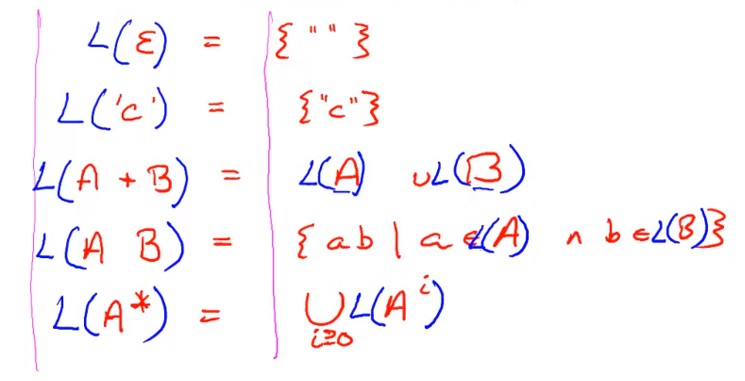 L(ε) = {""}
L('c') = {"c"}
L(A + B) = L(A) ∪ L(B)
L(A B) = {ab | a ∈ L(A) ∧ b ∈ L(B)}
L(A*) = ⋃i≥0 L(Aⁱ)